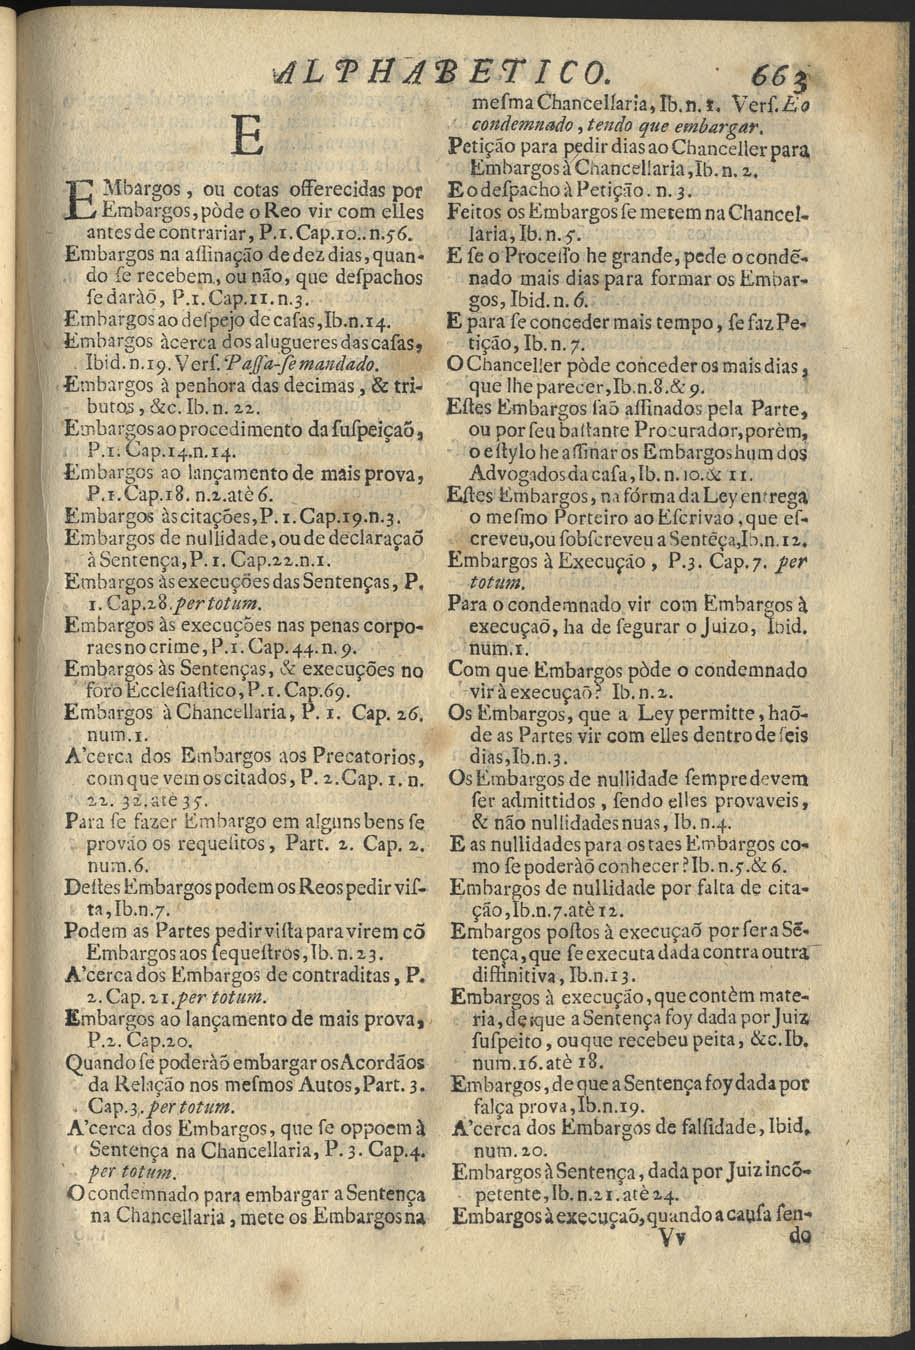 ALPHABETICO. 663
E
EMbargos, ou cotas offerecidas por
Embargos, pòde o Reo vir com elles
antes de contrariar, P.1.Cap.10..n.56.
Embargos na aſſinação de dez dias, quan-
do ſe recebem, ou não, que deſpachos
ſe daràõ, P.1.Cap.11.n.3.
Embargos ao deſpejo de caſas, Ib.n.14.
Embargos àcerca dos alugueres das caſas,
Ibid.n.19. Verſ. Paſſa-ſe mandado.
Embargos à penhora das decimas, & tri-
butos, &c. Ib. n. 22.
Embargos ao procedimento da ſuſpeiçaõ,
P.1. Cap.14.n.14.
Embargos ao lançamento de mais prova,
P.1.Cap.18. n.2.atè 6.
Embargos às citações, P.1.Cap.19.n.3.
Embargos de nullidade, ou de declaraçaõ
à Sentença, P.1. Cap.22.n.1.
Embargos às execuções das Sentenças, P.
1. Cap.28. per totum.
Embargos às execuções nas penas corpo-
raes no crime, P.1. Cap.44.n. 9.
Embargos às Sentenças, & execuções no
foro Eccleſiaſtico, P.1.Cap.69.
Embargos à Chancellaria, P. 1. Cap. 26.
num.1.
A'cerca dos Embargos aos Precatorios,
com que vem os citados, P. 2. Cap. 1. n.
22. 32. atè 35.
Para ſe fazer Embargo em alguns bens ſe
provão os requeſitos, Part. 2. Cap. 2.
num.6.
Deſtes Embargos podem os Reos pedir viſ-
ta, Ib.n.7.
Podem as Partes pedir viſta para virem cõ
Embargos aos ſequeſtros, Ib. n. 23.
A'cerca dos Embargos de contraditas, P.
2. Cap. 21. per totum.
Embargos ao lançamento de mais prova,
P.2. Cap.20.
Quando ſe poderàõ embargar os Acordãos
da Relação nos meſmos Autos, Part. 3.
Cap.3. per totum.
A'cerca dos Embargos, que ſe oppoem à
Sentença na Chancellaria, P. 3. Cap.4.
per totum.
O condemnado para embargar a Sentença
na Chancellaria, mete os Embargos na
meſma Chancellaria, Ib. n. 1. Verſ. E o
condemnado, tendo que embargar.
Petição para pedir dias ao Chanceller para
Embargos à Chancellaria, Ib. n. 2.
E o deſpacho à Petição. n. 3.
Feitos os Embargos ſe metem na Chancel-
laria, Ib. n. 5.
E ſe o Proceſſo he grande, pede o condẽ-
nado mais dias para formar os Embar-
gos, Ibid. n. 6.
E para ſe conceder mais tempo, ſe faz Pe-
tição, Ib. n. 7.
O Chanceller pòde conceder os mais dias,
que lhe parecer, Ib.n.8.& 9.
Eſtes Embargos ſaõ aſſinados pela Parte,
ou por ſeu baſtante Procurador, porèm,
o eſtylo he aſſinar os Embargos hum dos
Advogados da caſa, Ib. n. 10.& 11.
Eſtes Embargos, na fórma da Ley entrega
o meſmo Porteiro ao Eſcrivão, que eſ-
creveu, ou ſobſcreveu a Sentẽça, Ib.n.12.
Embargos à Execução, P.3. Cap. 7. per
totum.
Para o condemnado vir com Embargos à
execuçaõ, ha de ſegurar o Juizo, Ibid.
num.1.
Com que Embargos pòde o condemnado
vir à execuçaõ? Ib. n.2.
Os Embargos, que a Ley permitte, haõ-
de as Partes vir com elles dentro de ſeis
dias, Ib.n.3.
Os Embargos de nullidade ſempre devem
ſer admittidos, ſendo elles provaveis,
& não nullidades nuas, Ib. n.4.
E as nullidades para os taes Embargos co-
mo ſe poderàõ conhecer? Ib. n.5.& 6.
Embargos de nullidade por falta de cita-
ção, Ib.n.7.atè 12.
Embargos poſtos à execuçaõ por ſer a Sẽ-
tença, que ſe executa dada contra outra
diffinitiva, Ib.n.13.
Embargos à execução, que contèm mate-
ria, de que a Sentença foy dada por Juiz
ſuſpeito, ou que recebeu peita, &c. Ib.
num.16.atè 18.
Embargos, de que a Sentença foy dada por
falça prova, Ib.n.19.
A'cerca dos Embargos de falſidade, Ibid.
num.20.
Embargos à Sentença, dada por Juiz incõ-
petente, Ib. n.21.atè 24.
Embargos à execuçaõ, quando a cauſa ſen-
Vv do